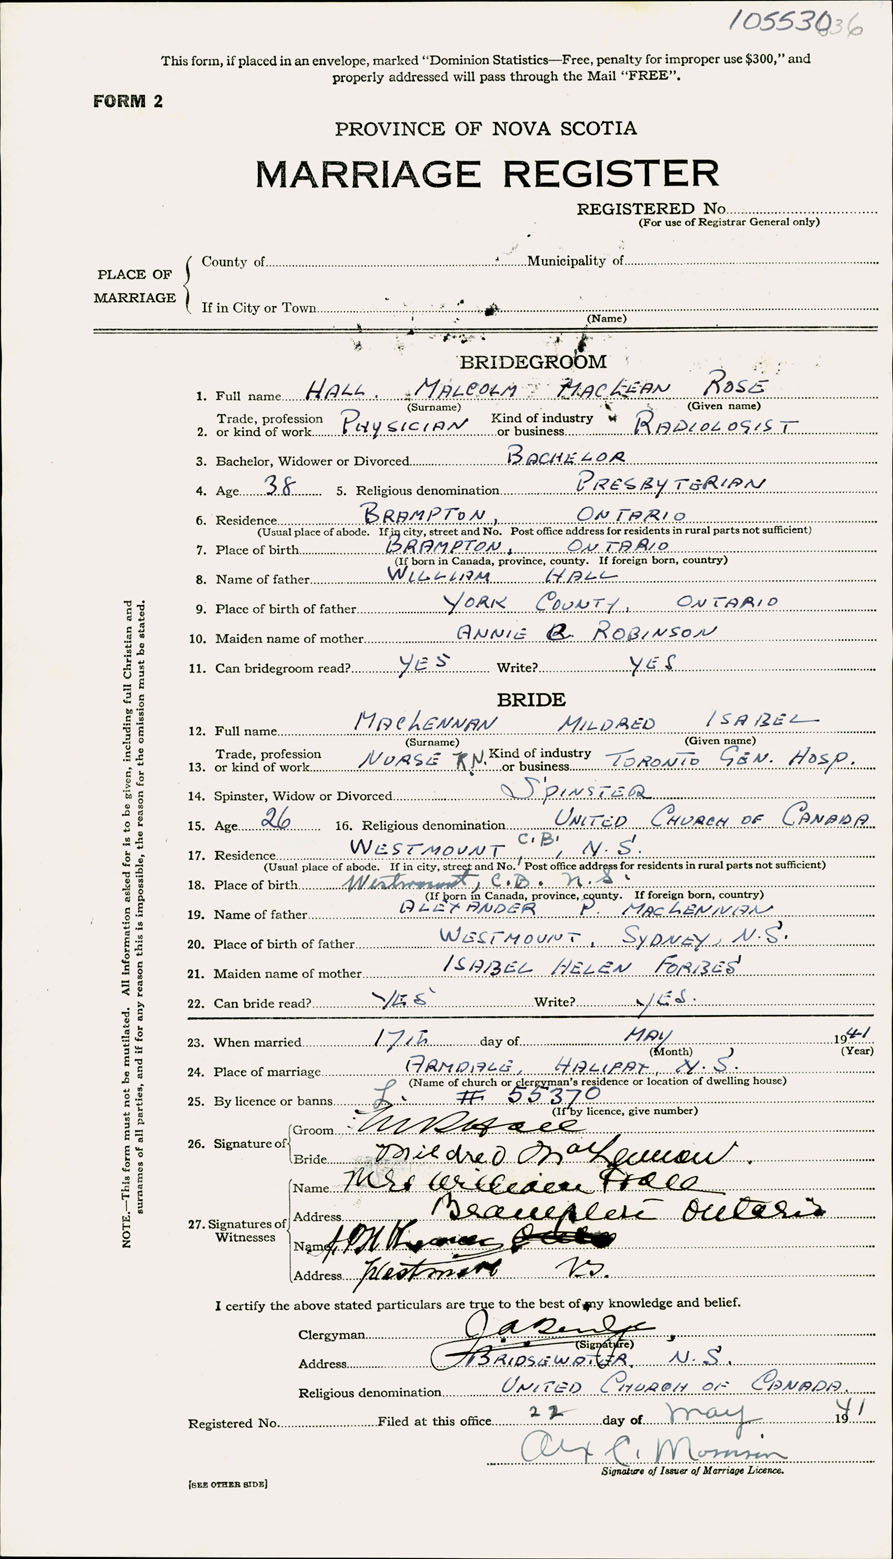 105530
This form, if placed in an envelope, marked "Dominion Statistics—Free, penalty for improper use $300," and
properly addressed will pass through the Mail "FREE".
FORM 2
PROVINCE OF NOVA SCOTIA
MARRIAGE REGISTER
REGISTERED No.
(For use of Registrar General only)
PLACE OF MARRIAGE
County of Municipality of
If in City or Town
(Name)
BRIDEGROOM
1. Full name HALL, MALCOLM MACLEAN ROSE
(Surname) (Given name)
2. Trade, profession or kind of work PHYSICIAN Kind of industry or business RADIOLOGIST
3. Bachelor, Widower or Divorced BACHELOR
4. Age 38 5. Religious denomination PRESBYTERIAN
6. Residence BRAMPTON, ONTARIO
(Usual place of abode. If in city, street and No. Post office address for residents in rural parts not sufficient)
7. Place of birth BRAMPTON, ONTARIO
(If born in Canada, province, county. If foreign born, country)
8. Name of father WILLIAM HALL
9. Place of birth of father YORK COUNTY, ONTARIO
10. Maiden name of mother ANNIE ROBINSON
11. Can bridegroom read? YES Write? YES
BRIDE
12. Full name MACLENNAN MILDRED ISABEL
(Surname) (Given name)
13. Trade, profession or kind of work NURSE R.N. Kind of industry or business TORONTO GEN. HOSP.
14. Spinster, Widow or Divorced SPINSTER
15. Age 26 16. Religious denomination UNITED CHURCH OF CANADA
17. Residence WESTMOUNT C.B., N.S.
(Usual place of abode. If in city, street and No. Post office address for residents in rural parts not sufficient)
18. Place of birth Westmount, C.B. N.S.
(If born in Canada, province, county. If foreign born, country)
19. Name of father ALEXANDER P. MACLENNAN
20. Place of birth of father WESTMOUNT, SYDNEY, N.S.
21. Maiden name of mother ISABEL HELEN FORBES
22. Can bride read? YES Write? YES.
23. When married 17th day of MAY 1941
(Month) (Year)
24. Place of marriage ARMDALE, HALIFAX, N.S.
(Name of church or clergyman's residence or location of dwelling house)
25. By licence or banns L. # 55370
(If by licence, give number)
26. Signature of
Groom M R Hall
Bride Mildred MacLennan.
27. Signatures of Witnesses
Name Mrs William Hall
Address Brampton Ontario
Name
Address Westmount N.S.
I certify the above stated particulars are true to the best of my knowledge and belief.
Clergyman
(Signature)
Address BRIDGEWATER, N.S.
Religious denomination UNITED CHURCH OF CANADA.
Registered No. Filed at this office 22 day of May 1941
Alex C. Morrison
Signature of Issuer of Marriage Licence.
[SEE OTHER SIDE]
NOTE.—This form must not be mutilated. All information asked for is to be given, including full Christian and
surnames of all parties, and if for any reason this is impossible, the reason for the omission must be stated.